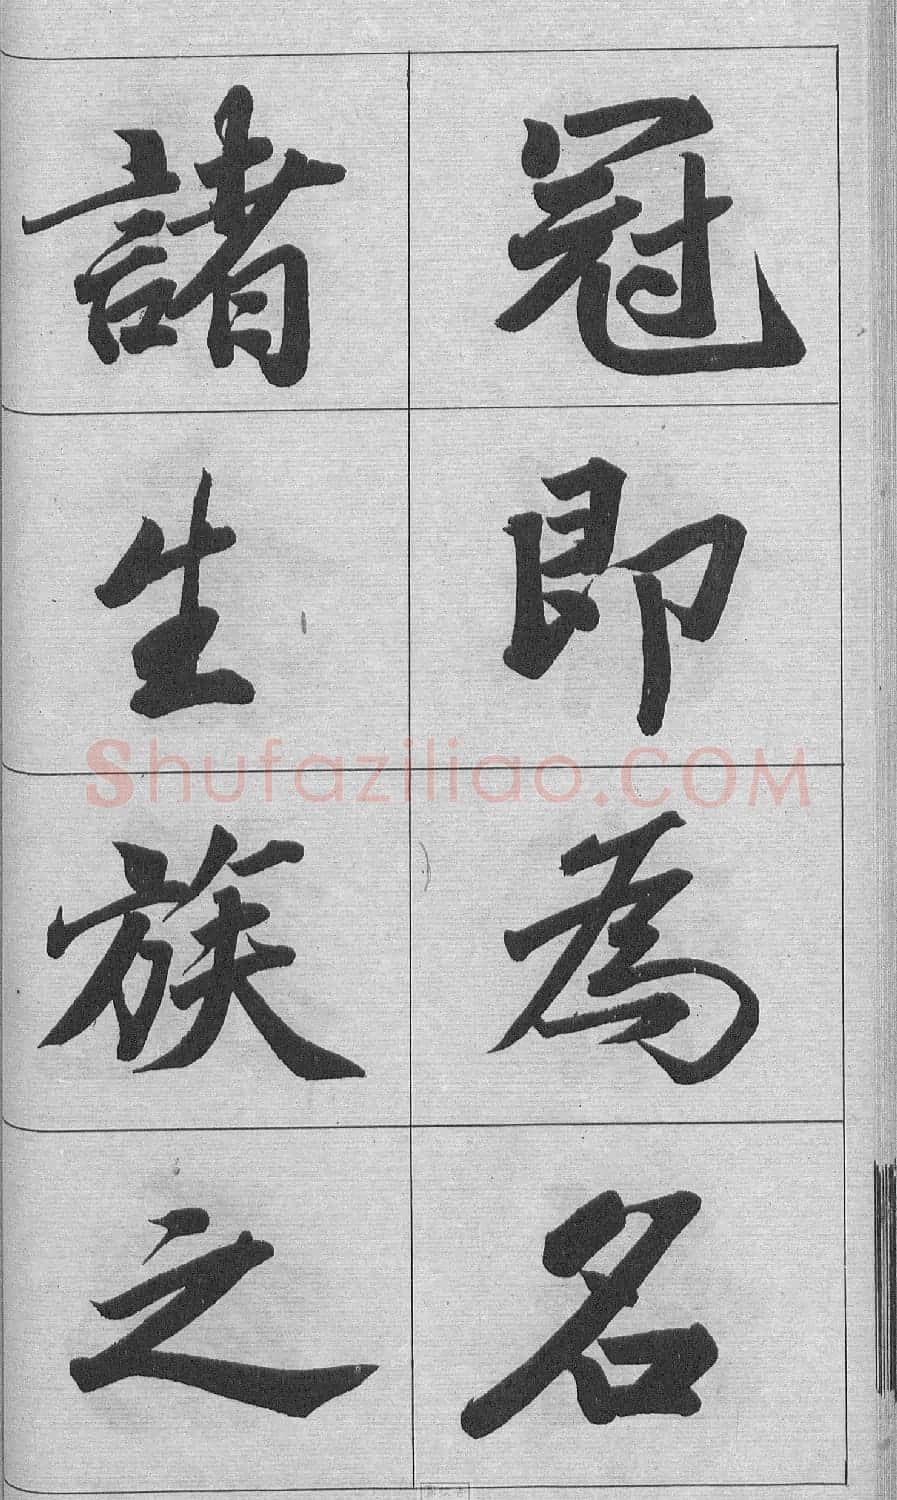 冠即為名
諸生族之
Shufaziliao.COM